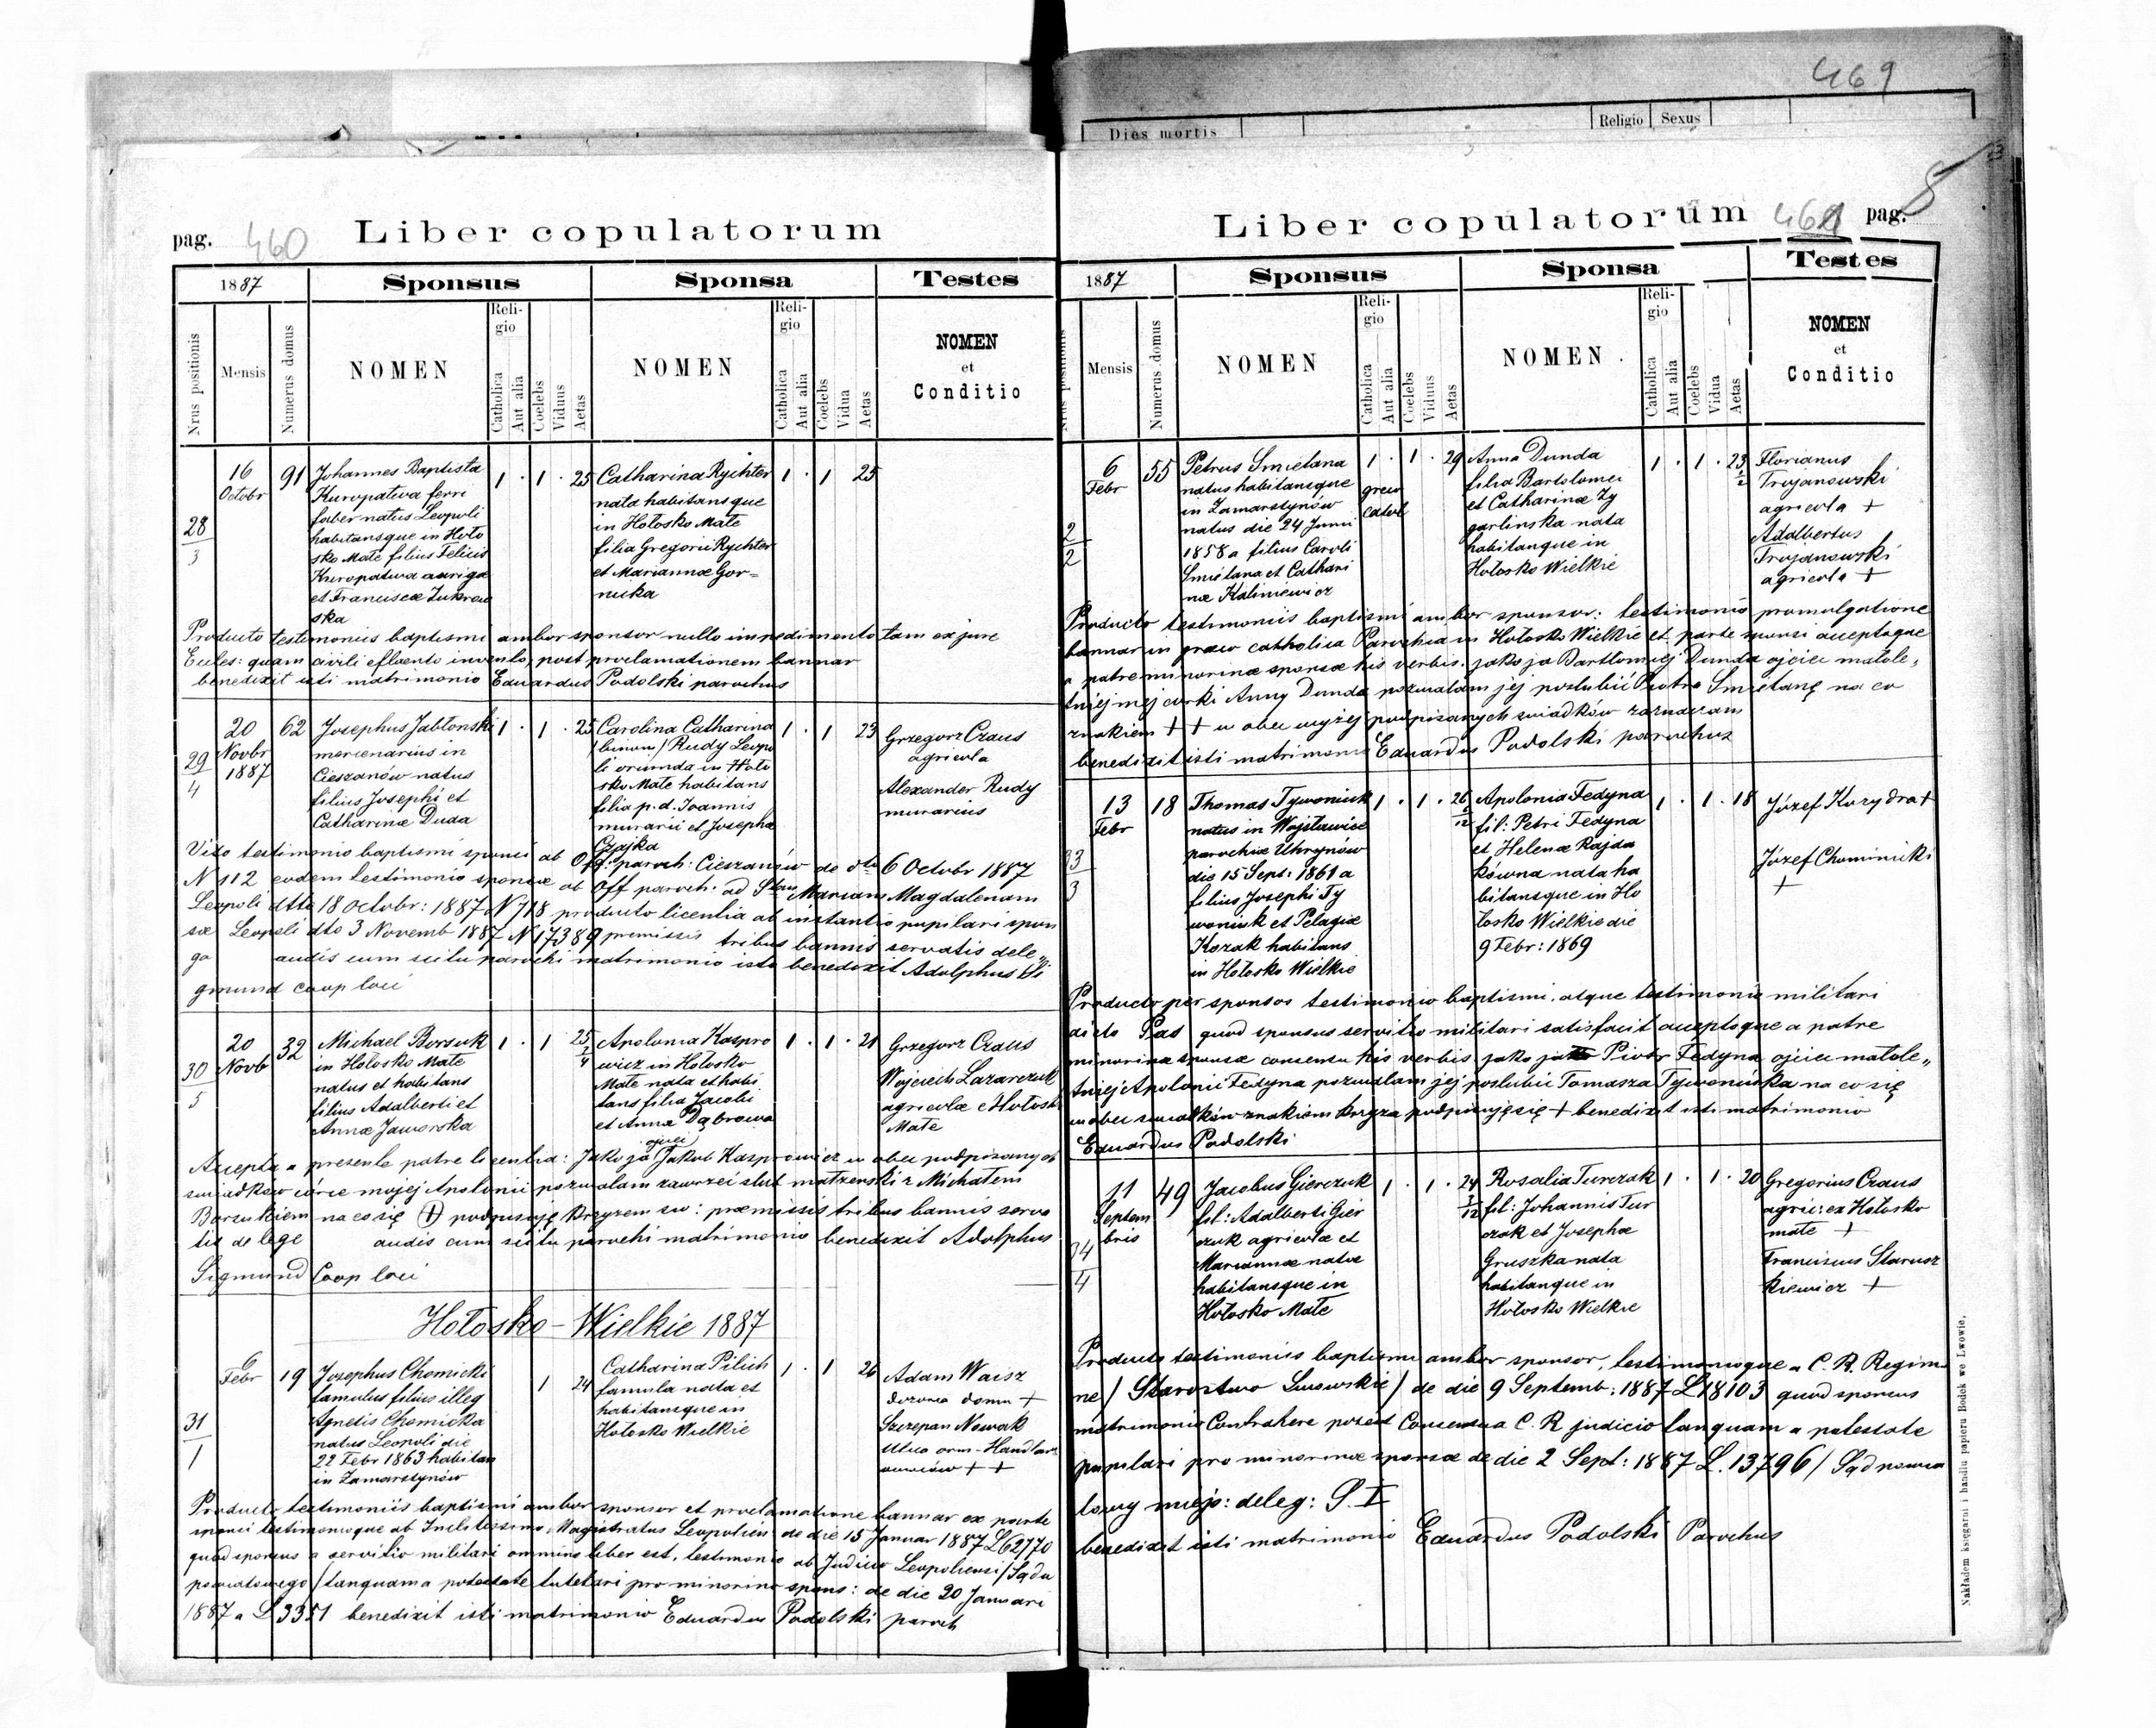 469
Dies mortis
Religio
Sexus
pag. 460
Liber copulatorum
1887
Sponsus
Sponsa
Testes
Nrus positionis
Mensis
Numerus domus
NOMEN
Religio
Catholica
Aut alia
Coelebs
Viduus
Aetas
NOMEN
Religio
Catholica
Aut alia
Coelebs
Vidua
Aetas
NOMEN
et
Conditio
28
3
16
Octobr
91
Johannes Baptista
Kuropatwa ferri
faber natus Leopoli
habitansque in Hoło
sko Małe filius Felicis
Kuropatwa aurigæ
et Franciscæ Żukrow
ska
1 . 1 . 25
Catharina Rychter
nata habitansque
in Hołosko Małe
filia Gregorii Rychter
et Mariannæ Gor=
nicka
1 . 1 25
Producto testimoniis baptismi ambor sponsor nullo impedimento tam ex jure
Eccles: quam civili efluento invento, post proclamationem bannar
benedixit isti matrimonio Eduardus Podolski parochus
29
4
20
Novbr
1887
62
Josephus Jabłonski
mercenarius in
Cieszanów natus
filius Josephi et
Catharinæ Duda
1 . 1 . 25
Carolina Catharina
/binom/ Rudy Leopo
li oriunda in Hoło
sko Małe habitans
filia p. d. Joannis
murarii et Josepha
Czajka
1 . 1 23
Grzegorz Craus
agricola
Alexander Rudy
murarius
Viso testimonio baptismi sponsi ab Off: paroch: Cieszanów de dto 6 Octobr 1887
N 112 eodem testimonio sponsæ ab Off paroch: ad Stam Mariam Magdalenam
Leopoli dtto 18 Octobr: 1887 N 718 producto licentia ab instantio pupilari spon
sæ Leopoli dto 3 Novemb 1887 N 17389 premissis tribus bannis servatis dele
ga audis cum scitu parochi matrimonio isto benedixit Adolphus Si
gmund coop loci
30
5
20
Novb
32
Michael Borsuk
in Hołosko Małe
natus et habitans
filius Adalberti et
Annæ Jaworska
1 . 1 25
3
4
Apolonia Kaspro
wicz in Hołosko
Małe nata et habi
tans filia Jacobi
et Anna Dąbrowa
1 . 1 . 21
Grzegorz Craus
Wojciech Lazarczuk
agricolæ e Hołosk
Małe
Accepta a presente patre licentia: Jako ja ojciec Jakob Kasprowicz w obec podpisanych
swiadków córce mojej Apolonii pozwalam zawrzei slub małzenski z Michałem
Borsukiem na co się (+) podpisuję Krzyzem su: præmissis tribus bannis serva
tis de lege audis cum scitu parochi matrimonio benedixit Adolphus
Sigmund Coop loci
Hołosko - Wielkie 1887
31
1
6
Febr
19
Josephus Chomicki
famulus filius illeg
Agnetis Chomicka
natus Leopoli die
22 Febr 1863 habitan
in Zamarstynów
1 24
Catharina Pilich
famula nata et
habitansque in
Hołosko Wielkie
1 . 1 26
Adam Waisz
dozorca domu +
Szczepan Nowak
+ +
Producto testimoniis baptismi ambor sponsor et proclamatione bannar ex parte
sponsi testimonioque ab Inclitissimo Magistratus Leopolien: de die 15 Januar 1887 L 62770
quod sponsus a servitio militari omnino liber est, testimonio ab Judicio Leopoliensi /Sądu
powiatowego/ tanquam a potestate tutelari pro minorina spons: de die 20 Januari
1887 a L 3351 benedixit isti matrimonio Eduardus Podolski paroch
Liber copulatorum
461
pag.
1887
Sponsus
Sponsa
Testes
Nrus positionis
Mensis
Numerus domus
NOMEN
Religio
Catholica
Aut alia
Coelebs
Viduus
Aetas
NOMEN
Religio
Catholica
Aut alia
Coelebs
Vidua
Aetas
NOMEN
et
Conditio
2
2
6
Febr
55
Petrus Smietana
natus habitansque
in Zamarstynów
natus die 24 Junii
1858 a filius Caroli
Smietana et Cathari
næ Kaliniewicz
1 . 1 . 29
greco
catol
Anna Dunda
filia Bartolomei
et Catharinæ Zy
garlinska nata
habitanque in
Hołosko Wielkie
1 . 1 . 23
Florianus
Trojanowski
agricola +
Adalbertus
Trojanowski
agricola +
Producto testimoniis baptismi ambor sponsor: testimonio promulgatione
bannar in græco catholica Parochia in Hołosko Wielkie et parte sponsi acceptaque
a patre minorinæ sponsæ his verbis: jako ja Bartłomiej Dunda ojciec małole,
tniej mej córki Anny Dunda pozwalam jej poslubić Piotra Smietanę na co
znakiem + + w obec wyżej podpisanych swiadków zaznaczam
benedixit isti matrimonio Eduardus Podolski parochus
33
3
13
Febr
18
Thomas Tywoniuk
natus in Wojsławice
parochiæ Uhrynów
die 15 Sept: 1861 a
filius Josephi Ty
woniuk et Pelagiæ
Kozak habitans
in Hołosko Wielkie
1 . 1 . 26
12
Apolonia Fedyna
fil: Petri Fedyna
et Helenæ Rajda
Kowna nata ha
bitansque in Ho
łosko Wielkie die
9 Febr: 1869
1 . 1 . 18
Józef Kurydra +
Józef Chominicki
+
Producto per sponsos testimonio baptismi, atque testimonio militari
dicto Pas quod sponsus servitio militari satisfacit acceptoque a patre
minorina sponsæ consensu his verbis jako ja Piotr Fedyna ojciec małole,,
tniej Apolonii Fedyna pozwalam jej poslubić Tomasza Tywoniuka na co się
w obec swiadków znakiem krzyza podpisuję się + benedixit isti matrimonio
Eduardus Podolski
34
4
11
Septem
bris
49
Jacobus Gierczuk
fil: Adalberti Gier
czuk agricolæ et
Mariannæ natæ
habitansque in
Hołosko Małe
1 . 1 . 24
12
Rosalia Turczak
fil: Johannis Tur
czak et Josephæ
Gruszka nata
habitanque in
Hołosko Wielkie
1 . 1 . 20
Gregorius Craus
agric: ex Hołosko
małe +
Franciscus Starusz
kiewicz +
Producto testimoniis baptismi ambor sponsor, testimonioque a C. R. Regim
ne / Starostwo Lwowskie / de die 9 Septemb: 1887 L 18103 quod sponsus
matrimonio Contrahere potest Consensu C. R judicio tanquam a potestate
pupilari pro minorinæ sponsæ de die 2 Sept: 1887 L. 13796 / Sąd powia
towy miejs: deleg: S. I
benedixit isti matrimonio Eduardus Podolski Parochus
Nakładem księgarni i handlu papieru Bodek we Lwowie.